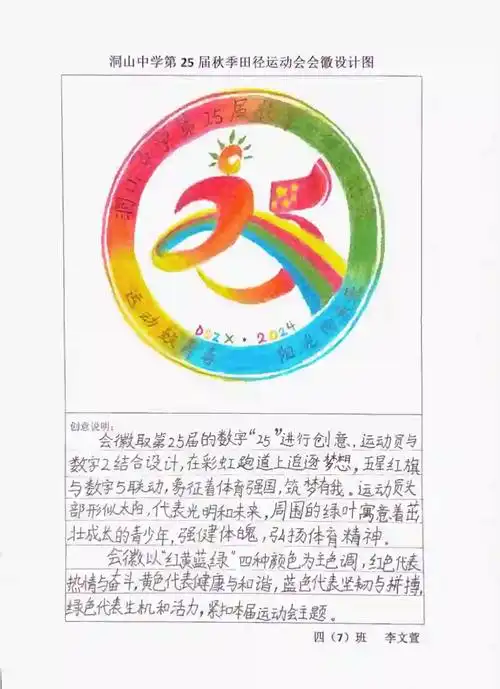 洞山中学第25届秋季田径运动会会徽设计图
洞山中学第25届
运动
DSZX·2024
阳光
创意说明:
会徽取第25届的数字“25”进行创意,运动员与
数字2结合设计,在彩虹跑道上追逐梦想,五星红旗
与数字5联动,象征着体育强国,筑梦有我。运动员头
部形似太阳,代表光明和未来,周围的绿叶寓意着茁
壮成长的青少年,强健体魄,弘扬体育精神。
会徽以“红黄蓝绿”四种颜色为主色调,红色代表
热情与奋斗,黄色代表健康与和谐,蓝色代表坚韧与拼搏,
绿色代表生机和活力,紧扣本届运动会主题。
四(7)班 李文萱